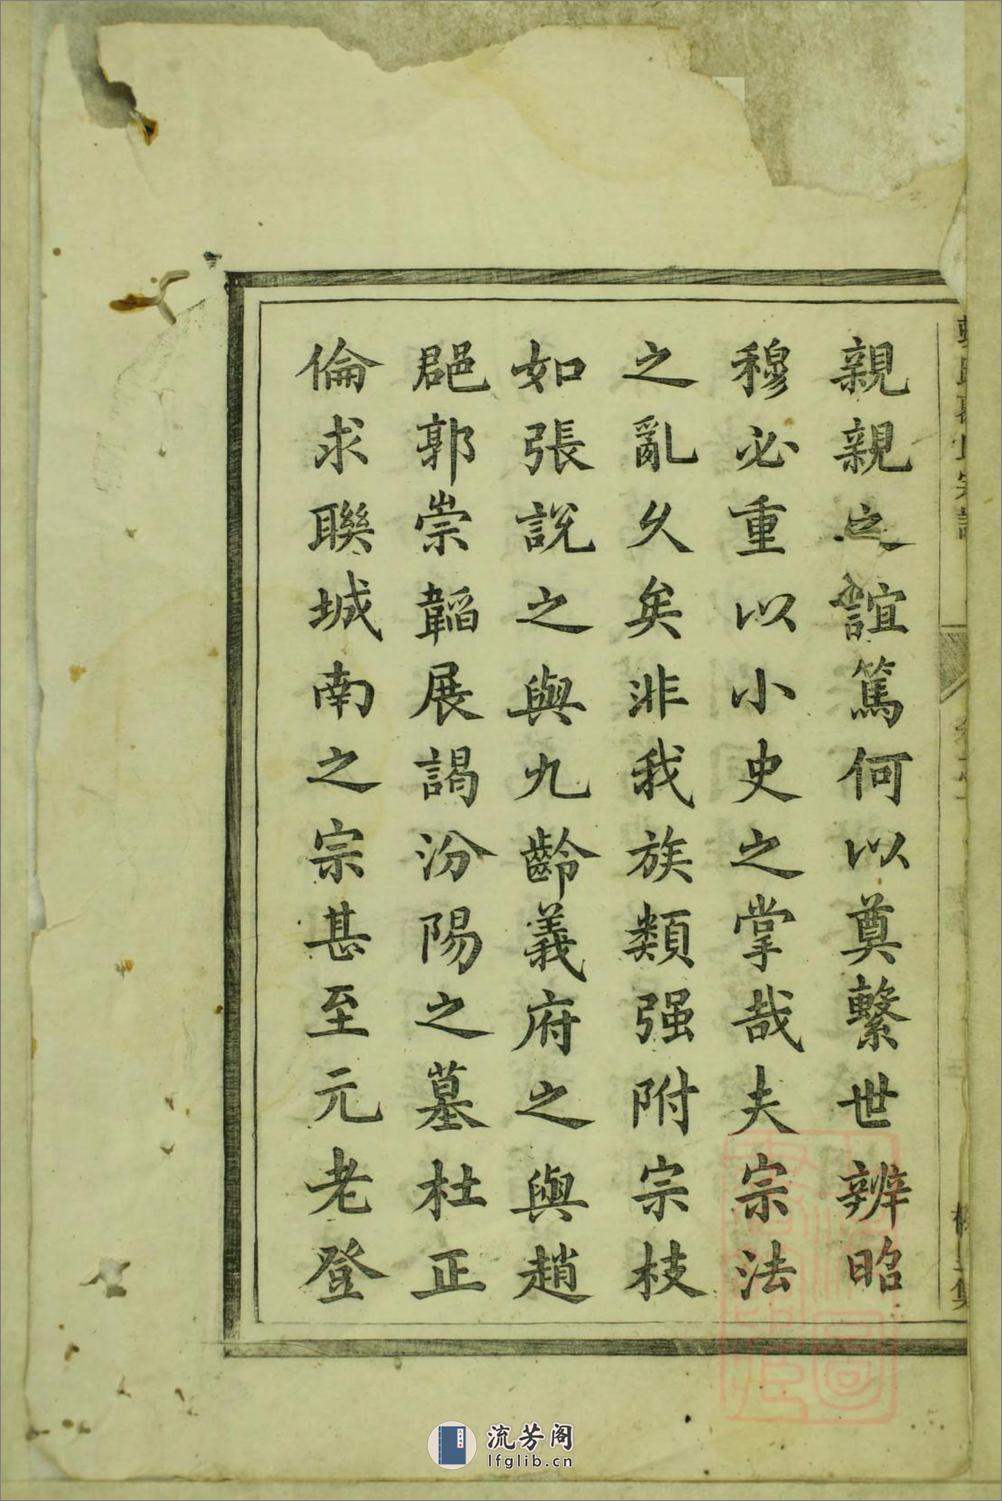 親親之誼篤何以奠繫世辨昭
穆必重以小史之掌哉夫宗法
之亂久矣非我族類强附宗枝
如張說之與九齡義府之與趙
郡郭崇韜展謁汾陽之墓杜正
倫求聯城南之宗甚至元老登
流芳阁
lfglib.cn